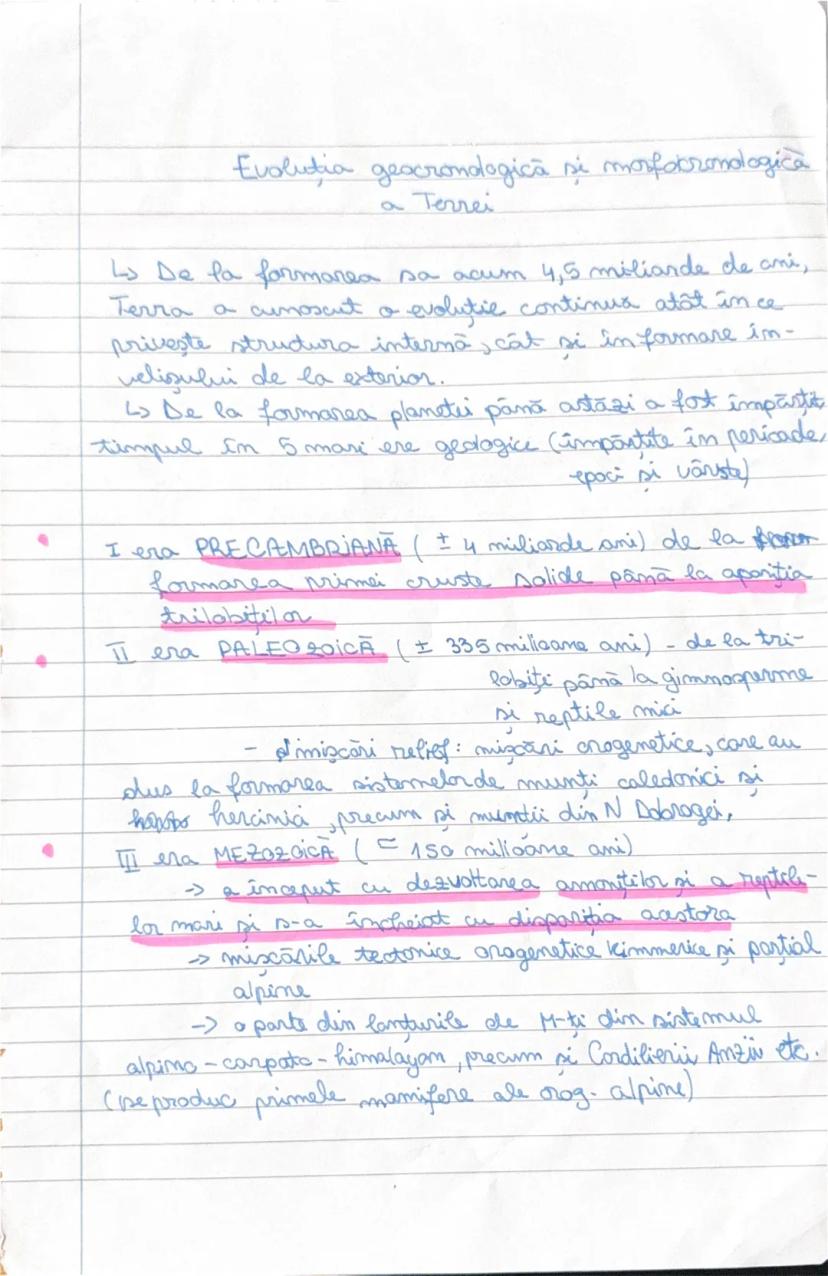 Evoluția geocronologică și morfocronologică
a Terrei
↳ De la formarea sa acum 4,5 miliarde de ani,
Terra a cunoscut o evoluție continua atât în ce
privește structura internă, cât și în formare în-
velișului de la exterior.
↳ De la formarea planetei până astăzi a fost împărțit
timpul în 5 mari ere geologice (împărțite în perioade,
epoci și vârste)
I era PRECAMBRIANĂ (± 4 miliarde ani) de la
formarea primei cruste solide până la apariția
trilobiților
II era PALEOZOICĂ (± 335 milioane ani) - de la tri-
lobiți până la gimnosperme
și reptile mici
- mișcări relief: mișcări orogenetice, care au
dus la formarea sistemelor de munți caledonici și
hercinici, precum și munții din N Dobrogei,
III era MEZOZOICĂ ( = 150 milioane ani)
→ a început cu dezvoltarea amoniților și a reptile-
lor mari și s-a încheiat cu dispariția acestora
→ mișcările tectonice orogenetice kimmerice și parțial
alpine
→ o parte din lanțurile de M-ți din sistemul
alpino-carpato-himalayan, precum și Cordilierii Anzii etc.
(se produc primele mamifere ale orog. alpine)